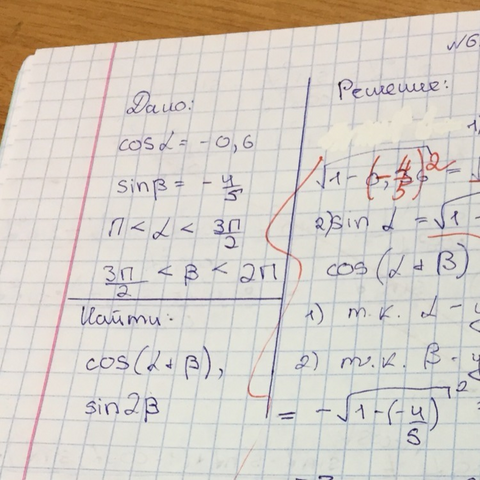 №6
Дано:
cos α = -0,6
sin β = -4/5
П < α < 3П/2
3П/2 < β < 2П
Найти:
cos(α + β),
sin 2β
Решение:
1)
√1-(-4/5)² =
2) sin α = √1 -
cos(α + β)
1) т.к. α - у
2) т.к. β - у
= -√1-(-4/5)²